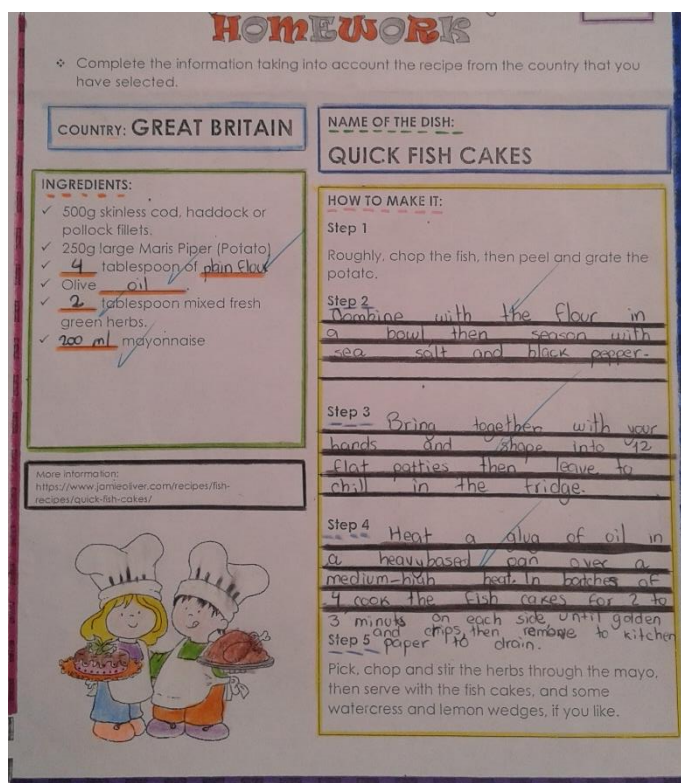 HOMEWORK
❖ Complete the information taking into account the recipe from the country that you
have selected.
COUNTRY: GREAT BRITAIN
NAME OF THE DISH:
QUICK FISH CAKES
INGREDIENTS:
✓ 500g skinless cod, haddock or
pollock fillets.
✓ 250g large Maris Piper (Potato)
✓ 4 tablespoon of plain flour
✓ Olive oil.
✓ 2 tablespoon mixed fresh
green herbs.
✓ 200 ml mayonnaise
More information:
https://www.jamieoliver.com/recipes/fish-
recipes/quick-fish-cakes/
HOW TO MAKE IT:
Step 1
Roughly, chop the fish, then peel and grate the
potato.
Step 2
Combine with the flour in
a bowl then season with
sea salt and black pepper.
Step 3 Bring together with your
hands and shape into 12
flat patties then leave to
chill in the fridge.
Step 4 Heat a glug of oil in
a heavybased pan over a
medium-high heat. In batches of
4 cook the fish cakes for 2 to
3 minuts on each side, until golden
and crips, then remove to kitchen
Step 5 paper to drain.
Pick, chop and stir the herbs through the mayo,
then serve with the fish cakes, and some
watercress and lemon wedges, if you like.